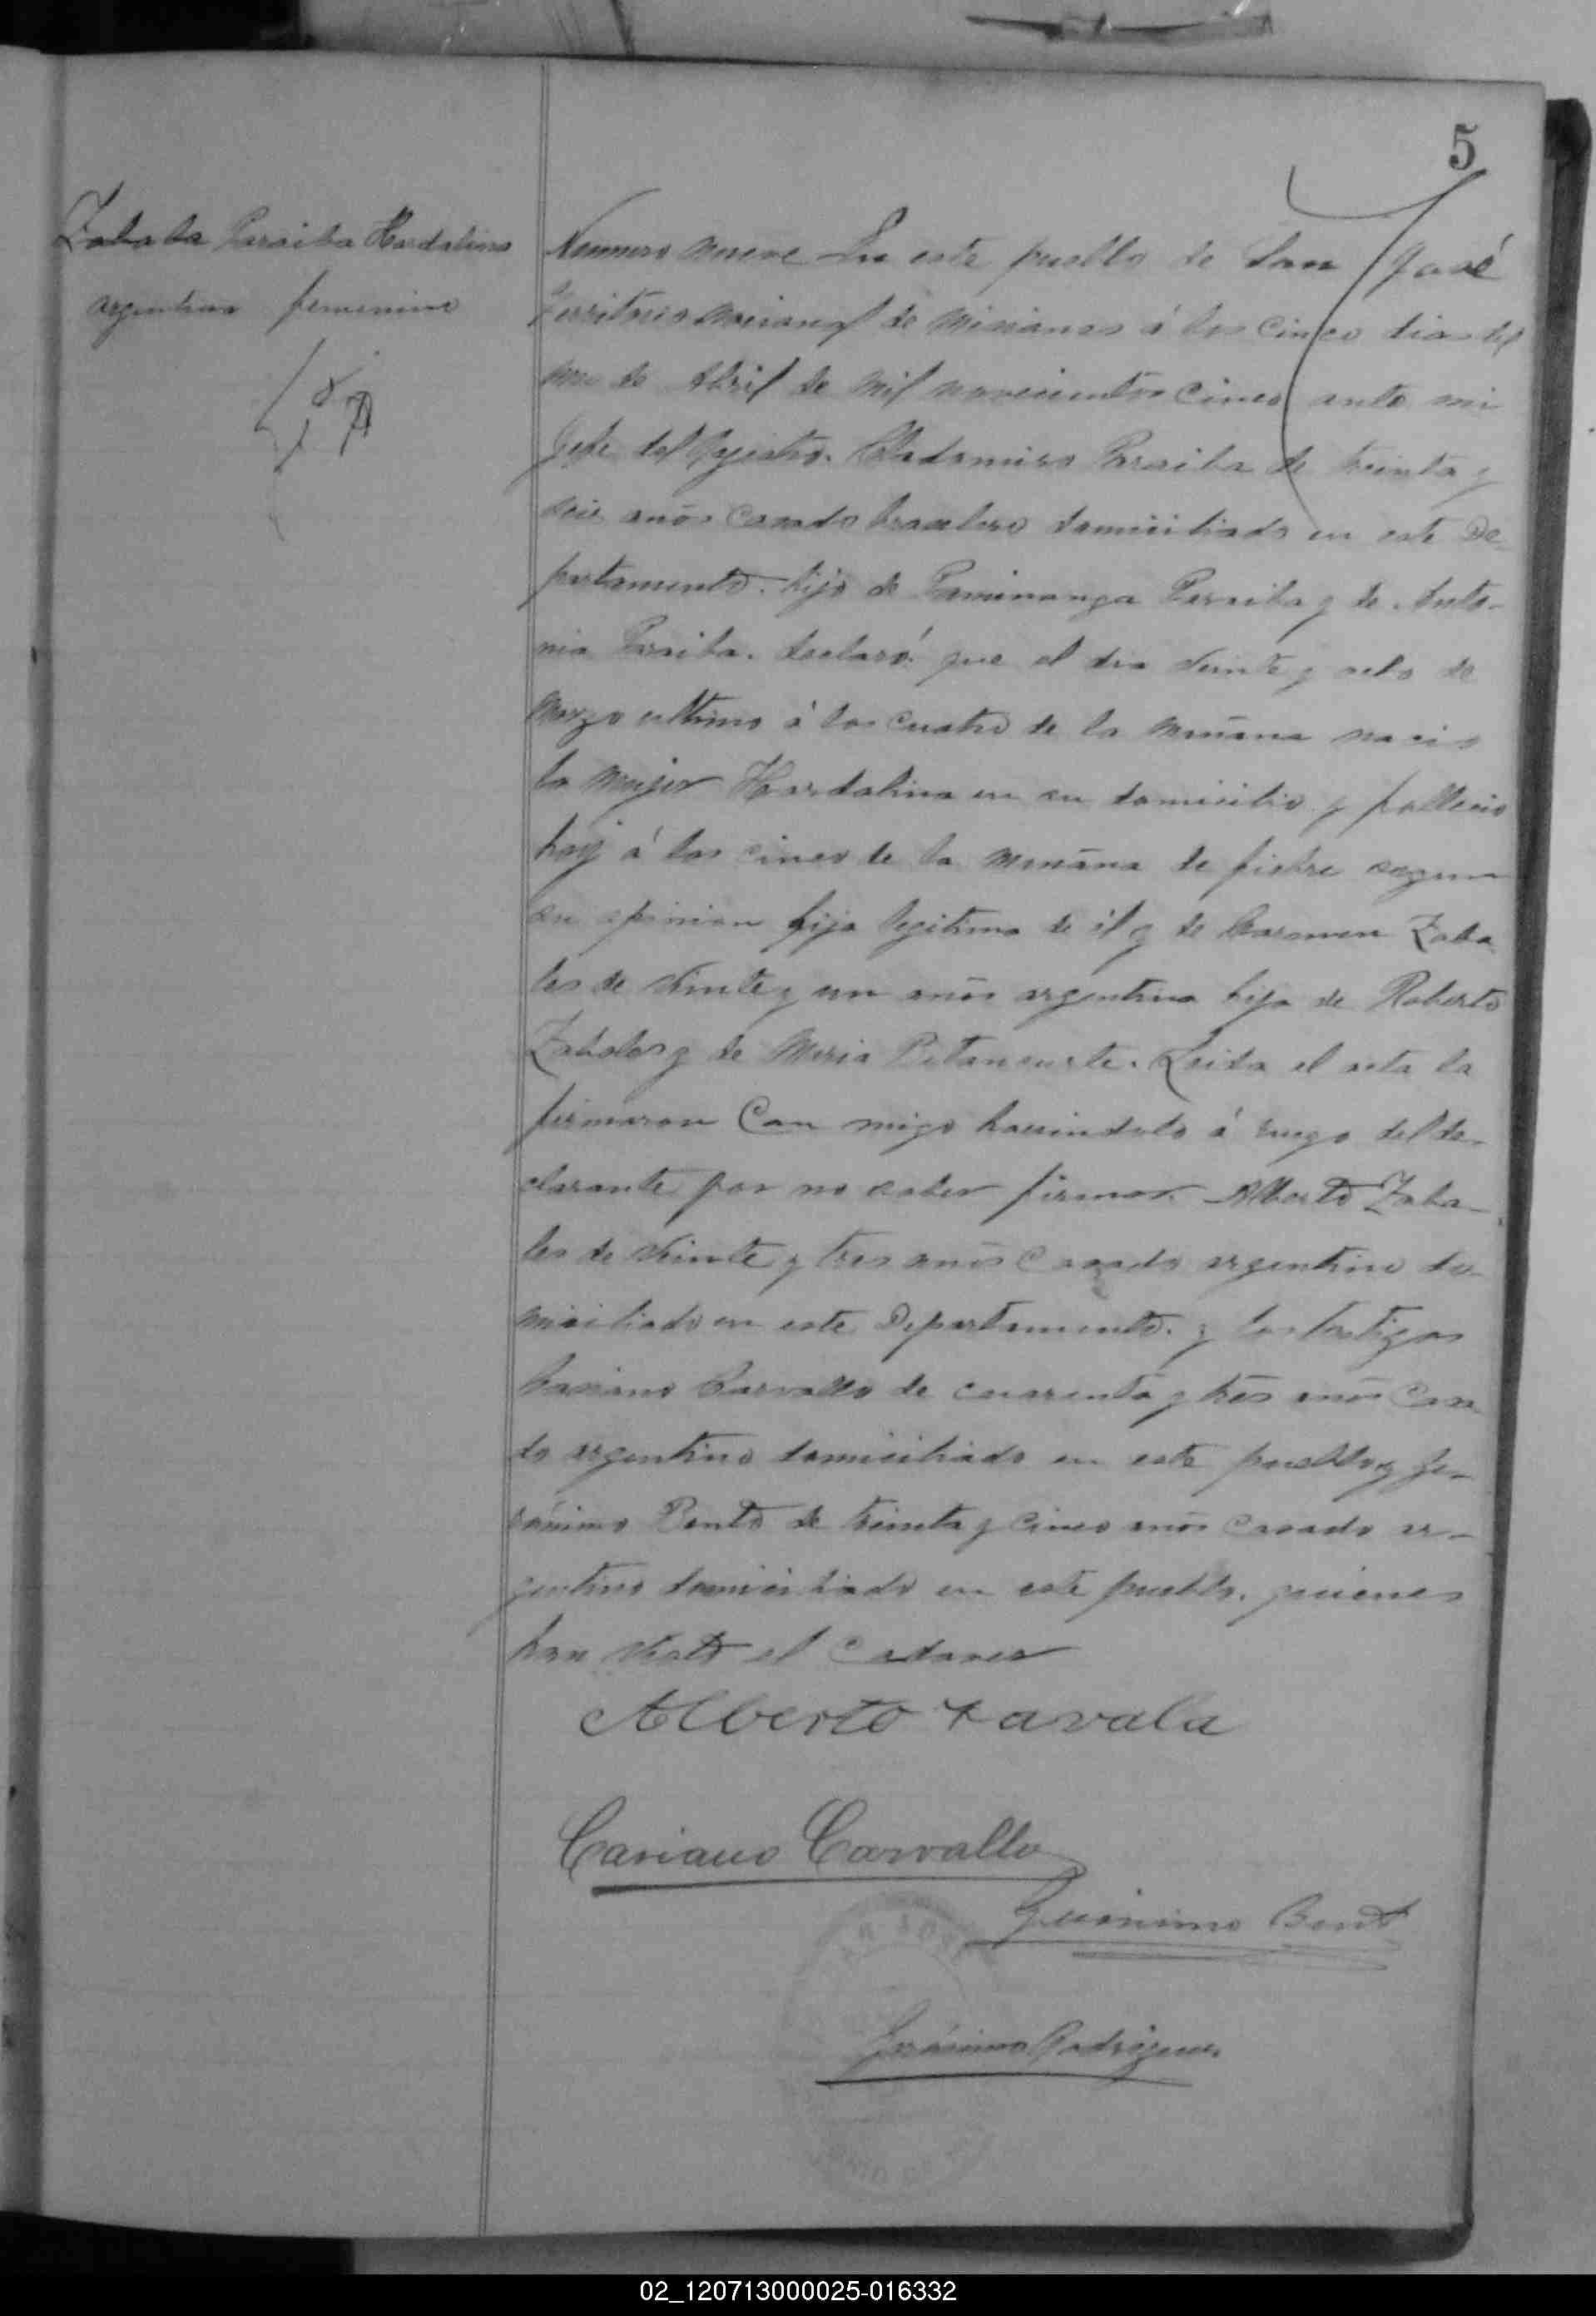 5
Zabala Paraiba Hardalina
argentina femenino
Numero nueve En este pueblo de San José
Territorio Nacional de Misiones á los cinco dias del
mes de Abril de mil novecientos cinco ante mi
Jefe del Registro. Cladomiro Paraiba de treinta y
seis años casado brasilero domiciliado en este De-
partamento. hijo de Paraiba y de Anto-
nia Paraiba. declaró: que el dia veinte y ocho de
Marzo ultimo á las cuatro de la mañana nacio
la mujer Hardalina en su domicilio y fallecio
hoy á las cinco de la mañana de fiebre segun
su opinion hija legitima de él y de Carmen Zaba-
la de veinte y un años argentina hija de Roberto
Zabala y de Maria Betancurte. Leida el acta la
firmaron Con migo haciendolo á ruego del de-
clarante por no saber firmar. Alberto Zaba-
la de veinte y tres años Casado argentino do-
miciliado en este Departamento. y los testigos
Casiano Carvallo de cuarenta y tres años Casa-
do argentino domiciliado en este pueblo y Ge-
rónimo Bento de treinta y cinco años casado ar-
gentino domiciliado en este pueblo. quienes
han visto el cadaver
Alberto Zavala
Casiano Carvallo
Geronimo Bento
Rodriguez
02_120713000025-016332